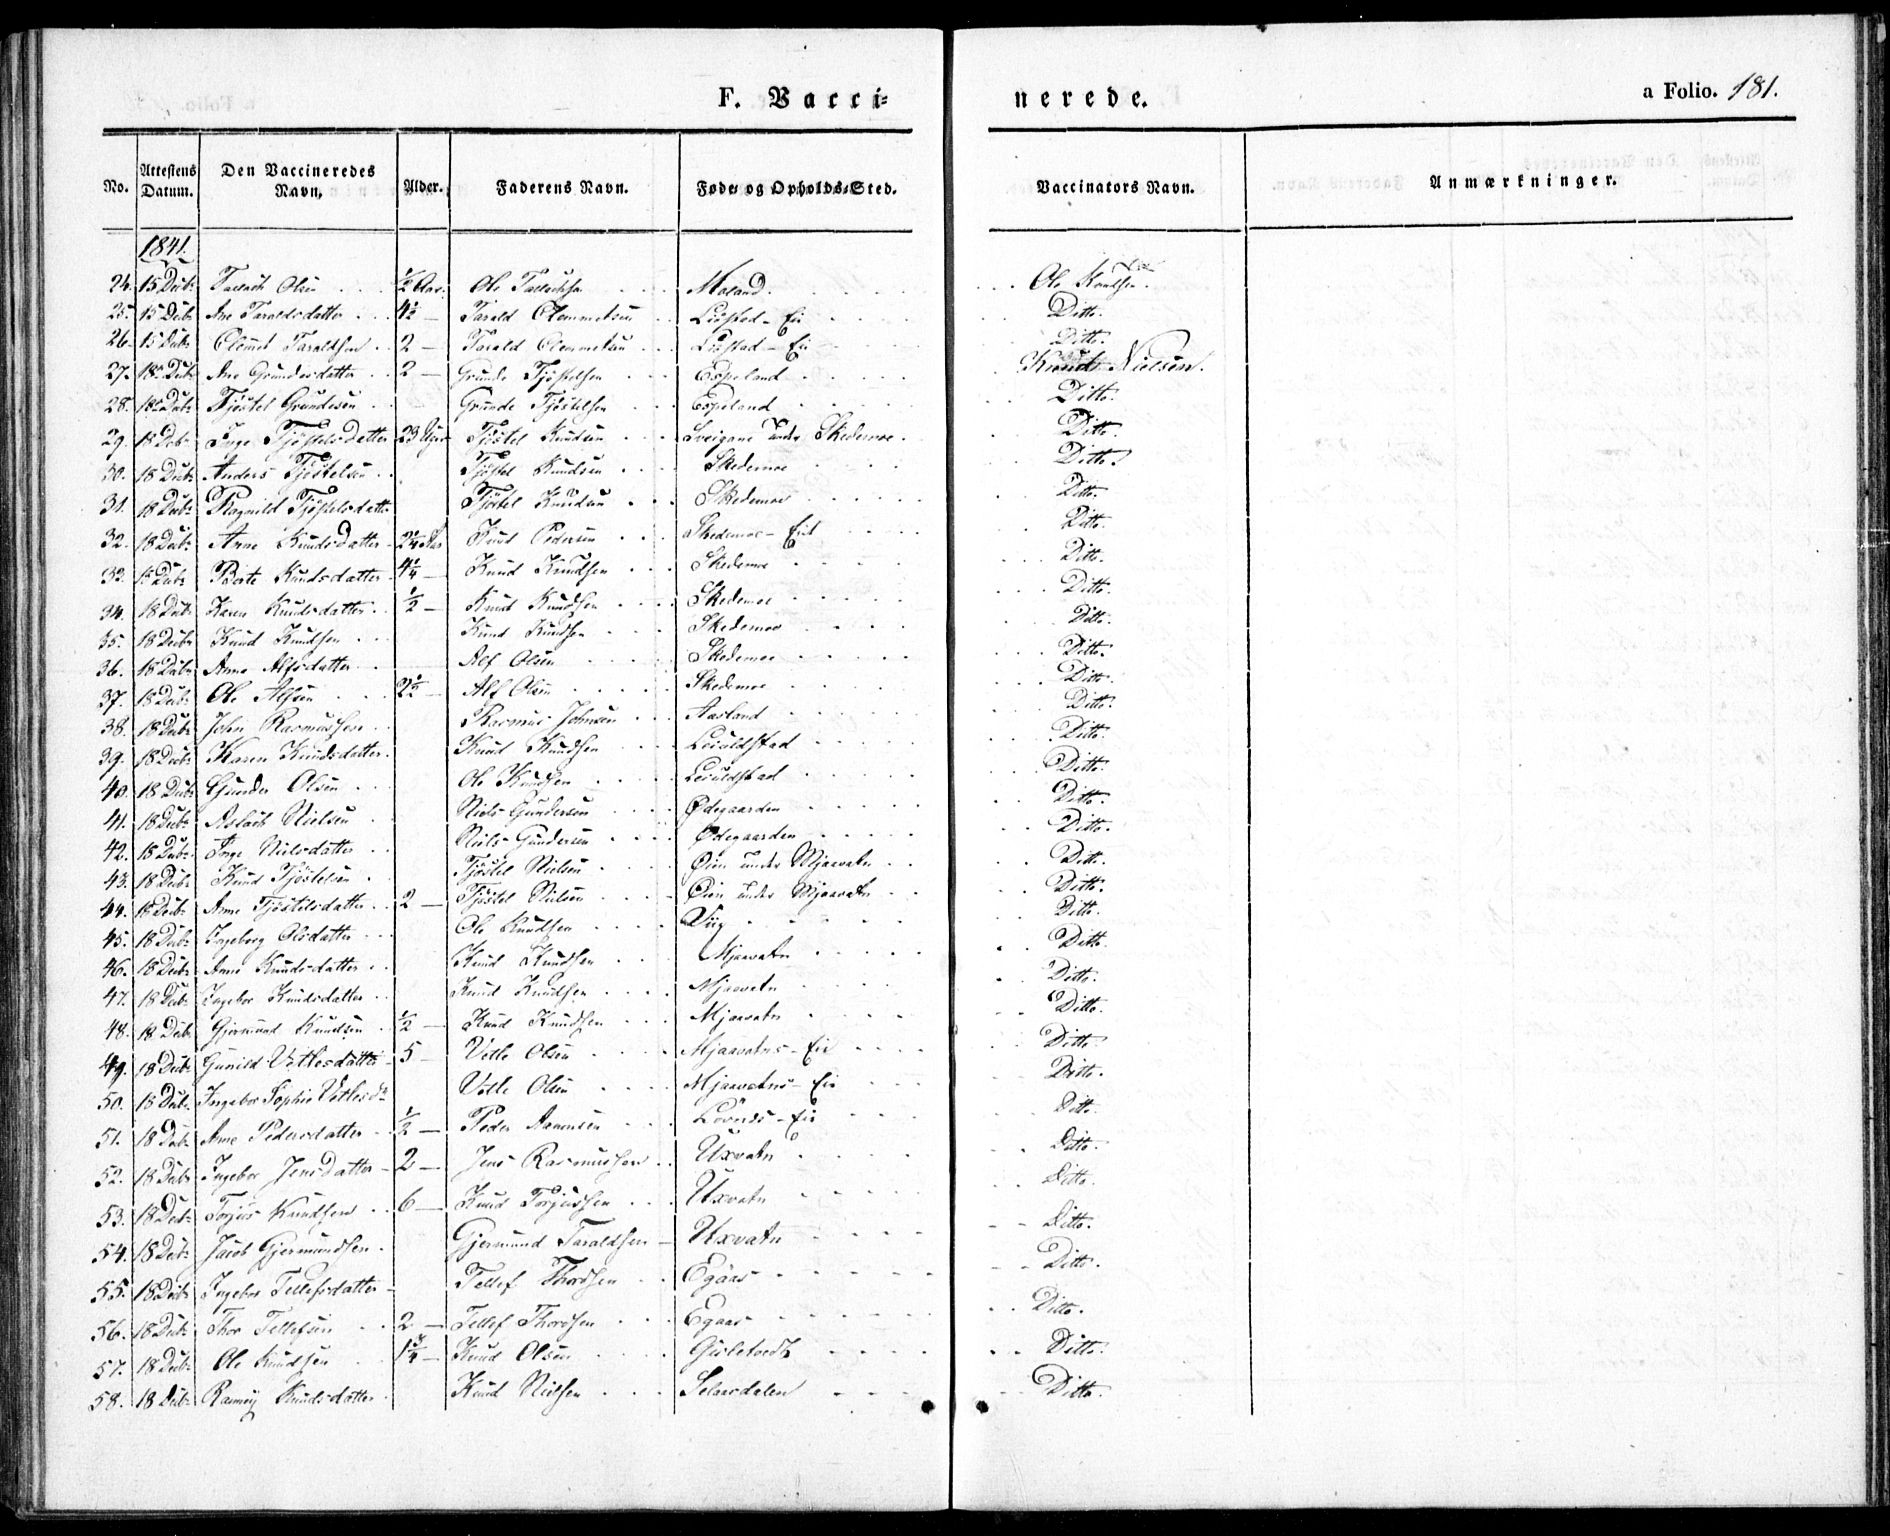 F. Vacci-
nerede.
a Folio. 181.
No. Attestens Datum. Den Vaccineredes Navn, Alder. Faderens Navn. Føde- og Opholds-Sted. Vaccinators Navn. Anmærkninger.
1841.
24. 15 Decbr Tallach Olsen ½ Aar. Ole Tallachsen Moland. Ole Knudsen.
25. 15 Decbr Ane Taraldsdatter 4½ — Tarald Clemmetsen Ditto.
26. 15 Decbr Clemet Taraldsen 2 — Tarald Clemmetsen Ditto.
27. 18 Decbr Ane Grundesdatter 2 — Grunde Tjøstelsen Espeland Knud Nielsen.
28. 18 Decbr Tjøstel Grundesen Grunde Tjøstelsen Espeland Ditto.
29. 18 Decbr Inge Tjøstelsdatter 23 Uger Tjøstel Knudsen Sveigane under Skedemoe. Ditto.
30. 18 Decbr Anders Tjøstelsen Tjøstel Knudsen Skedemoe Ditto.
31. 18 Decbr Ragnild Tjøstelsdatter Tjøstel Knudsen Skedemoe Ditto.
32. 18 Decbr Anne Knudsdatter 2¼ Aar Knud Pedersen Skedemoe-Eiet Ditto.
33. 18 Decbr Berte Knudsdatter 4¼ — Knud Knudsen Skedemoe Ditto.
34. 18 Decbr Karen Knudsdatter ½ — Knud Knudsen Skedemoe Ditto.
35. 18 Decbr Knud Knudsen Knud Knudsen Skedemoe Ditto.
36. 18 Decbr Anne Alfsdatter Alf Olsen Skedemoe Ditto.
37. 18 Decbr Ole Alfsen 2½ — Alf Olsen Skedemoe Ditto.
38. 18 Decbr John Rasmussen Rasmus Johnsen Aasland Ditto.
39. 18 Decbr Karen Knudsdatter Knud Knudsen Leiuldstad Ditto.
40. 18 Decbr Gunder Olsen Ole Knudsen Leiuldstad Ditto.
41. 18 Decbr Aslach Nielsen Niels Gundersen Ødegaarden Ditto.
42. 18 Decbr Inge Nielsdatter Niels Gundersen Ødegaarden Ditto.
43. 18 Decbr Knud Tjøstelsen Tjøstel Nielsen Øien under Mjaavatn Ditto.
44. 18 Decbr Anne Tjøstelsdatter 2 — Tjøstel Nielsen Øien under Mjaavatn Ditto.
45. 18 Decbr Ingeborg Olsdatter Ole Knudsen Viig Ditto.
46. 18 Decbr Anne Knudsdatter Knud Knudsen Mjaavatn Ditto.
47. 18 Decbr Ingebor Knudsdatter Knud Knudsen Mjaavatn Ditto.
48. 18 Decbr Gjermund Knudsen ½ — Knud Knudsen Mjaavatn Ditto.
49. 18 Decbr Gunild Vetlesdatter 5 — Vetle Olsen Mjaavatns-Eie Ditto.
50. 18 Decbr Ingebor Sophie Vetlesdr Vetle Olsen Mjaavatns-Eie Ditto.
51. 18 Decbr Anne Pedersdatter ½ — Peder Aanonsen Ditto.
52. 18 Decbr Ingebor Jensdatter 2 — Jens Rasmussen Uxvatn Ditto.
53. 18 Decbr Torjus Knudsen 6 — Knud Torjussen Uxvatn Ditto.
54. 18 Decbr Jacob Gjermundsen Gjermund Taraldsen Uxvatn Ditto.
55. 18 Decbr Ingebor Tellefsdatter Tellef Thordsen Egaas Ditto.
56. 18 Decbr Thor Tellefsen 2 — Tellef Thordsen Egaas Ditto.
57. 18 Decbr Ole Knudsen 1¾ — Knud Olsen Ditto.
58. 18 Decbr Knudsdatter Knud Nielsen Selaasdalen Ditto.